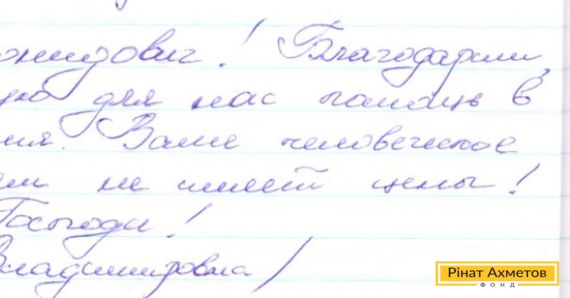 онидович! Благодарим
для нас помощь в
ия. Ваше человеческое
не имеет цены!
Господи!
Владимировна/
Рінат Ахметов
ФОНД